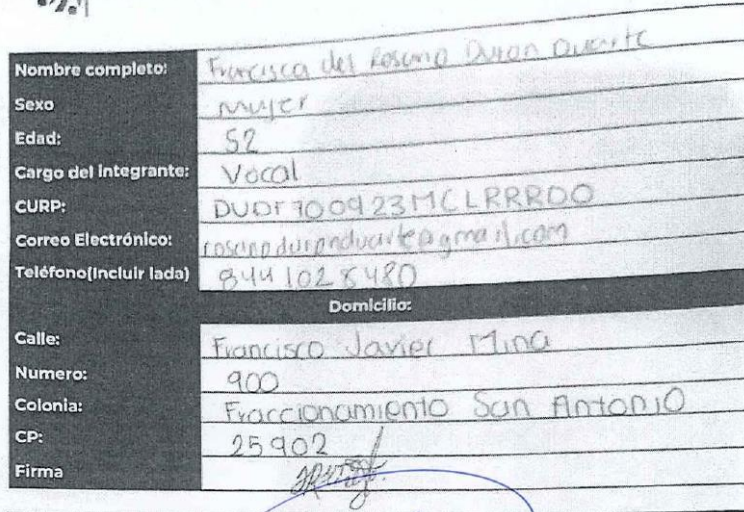 Nombre completo: Francisca del Rosario Duran Duarte
Sexo mujer
Edad: 52
Cargo del integrante: Vocal
CURP: DUDF700923MCLRRR00
Correo Electrónico: rosarioduranduarte@gmail.com
Teléfono(Incluir lada) 8441028480
Domicilio:
Calle: Francisco Javier Mina
Numero: 900
Colonia: Fraccionamiento San Antonio
CP: 25902
Firma